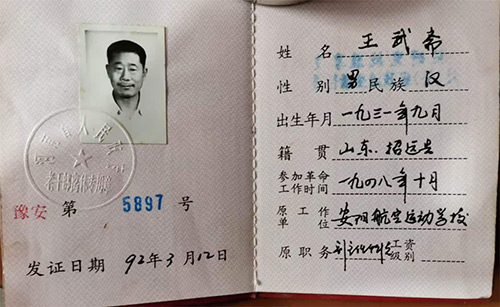 豫安 第 5897 号
发证日期 92年3月12日
姓名 王武斋
性别 男 民族 汉
出生年月 一九三一年九月
籍贯 山东、招远县
参加革命工作时间 一九四八年十月
原工作单位 安阳航空运动学校
原职务 工资级别